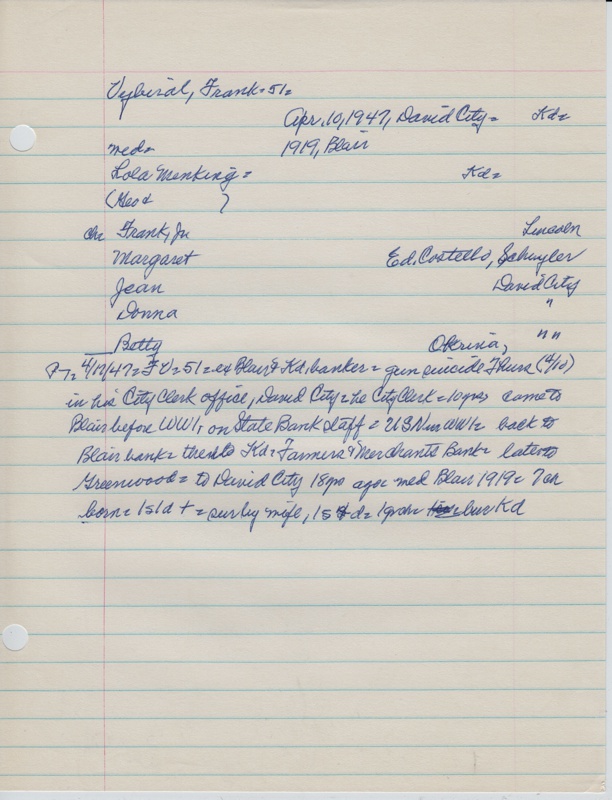 Vybiral, Frank = 51 =
Apr. 10, 1947, David City = Kd =
med = 1919, Blair
Lola Menking = Kd =
(Geo & )
ch Frank, Jr Lincoln
Margaret Ed. Costello, Schuyler
Jean David City
Donna "
Betty Okrina, " "
4/17/47 = F V = 51 = ex Blair & Kd. banker = gun suicide Thurs (4/10)
in his City Clerk office, David City = he City Clerk = 10 yrs came to
Blair before WW1, on State Bank staff = USN in WW1 = back to
Blair bank = then to Kd = Farmers & Merchants Bank = later to
Greenwood = to David City 18 yrs ago = med Blair 1919 = 7 ch
born = 1s 1d + = sur by wife, 1s 4d = 1 gdch = bur Kd